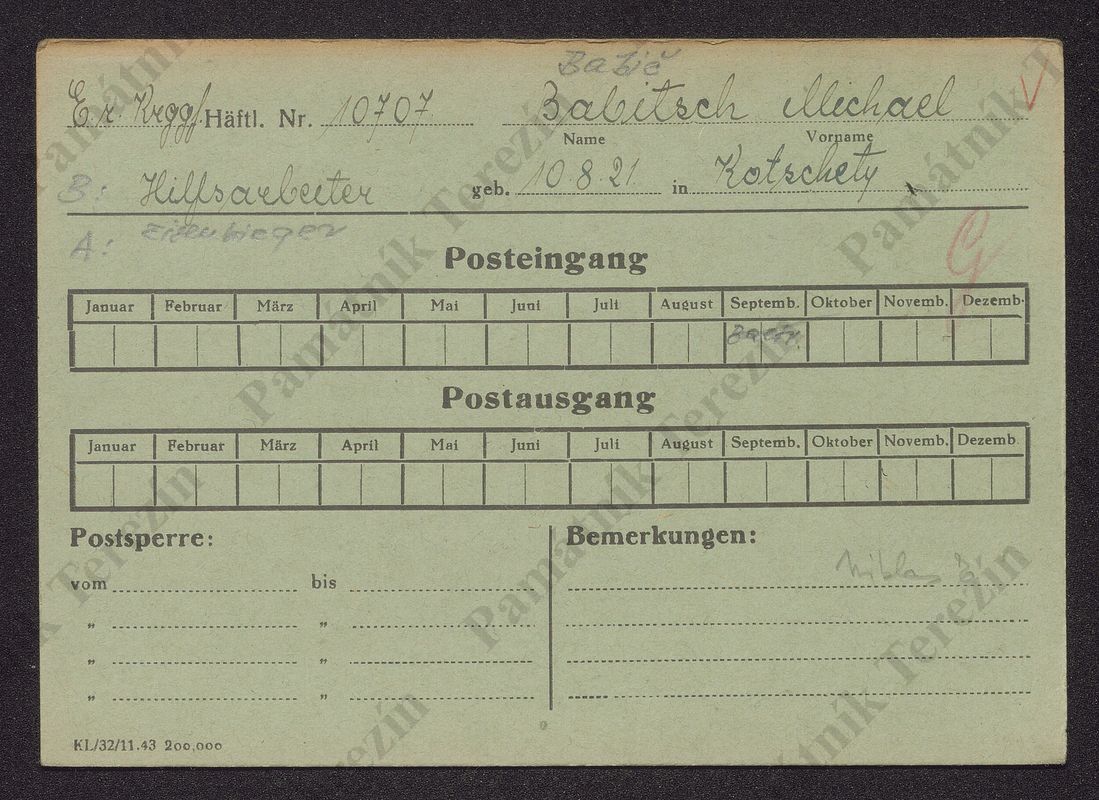 Babič
Er. Krggf. Häftl. Nr. 10707 Babitsch Michael
Name Vorname
B: Hilfsarbeiter geb. 10.8.21. in Kotschety
A: Eisenbieger
Posteingang
Januar Februar März April Mai Juni Juli August Septemb. Oktober Novemb. Dezemb.
Postausgang
Januar Februar März April Mai Juni Juli August Septemb. Oktober Novemb. Dezemb.
Postsperre: Bemerkungen:
vom bis
„ „
„ „
„ „
KL/32/11.43 200,000
Památník Terezín